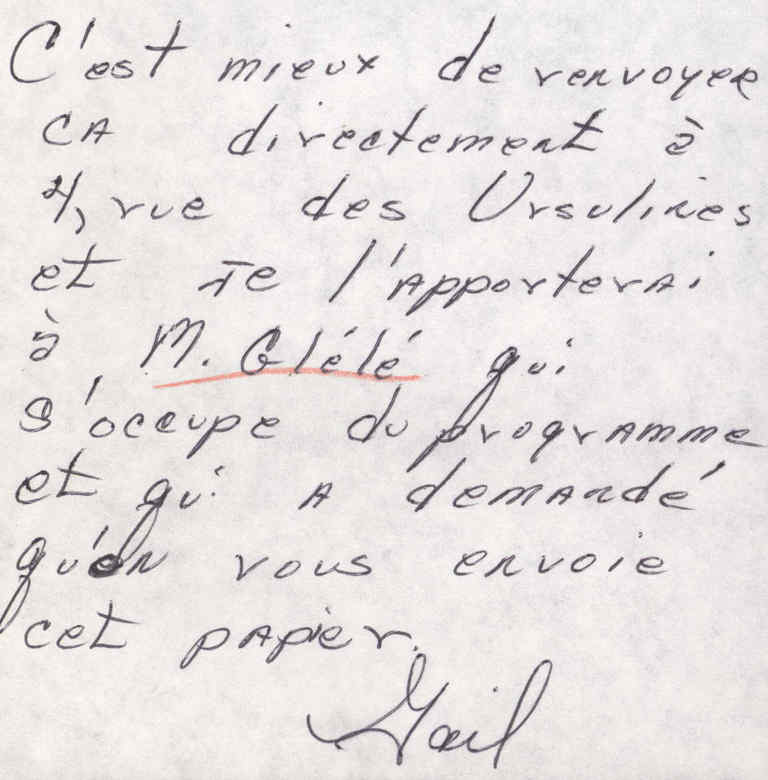 C'est mieux de renvoyer
ça directement à
4, rue des Ursulines
et je l'apporterai
à M. Glélé qui
s'occupe du programme
et qui a demandé
qu'on vous envoie
cet papier.
Gail